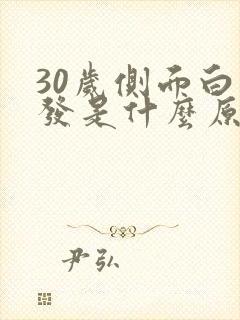 30歲側而白
發是什麼原
尹弘